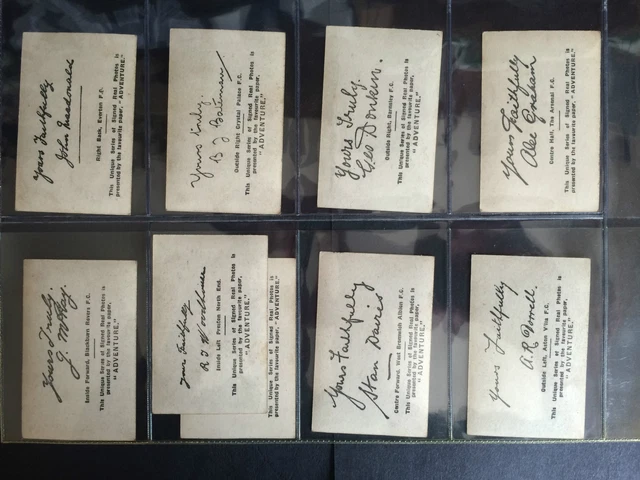 Yours Faithfully
John Macdonald
Right Back, Everton F.C.
This Unique Series of Signed Real Photos is
presented by the favourite paper,
"ADVENTURE."
Yours truly.
B J Bateman
Outside Right Crystal Palace F.C.
This Unique Series of Signed Real Photos is
presented by the favourite paper,
"ADVENTURE."
Yours Truly.
Geo Donkin.
Outside Right, Barnsley F.C.
This Unique Series of Signed Real Photos is
presented by the favourite paper,
"ADVENTURE."
Yours Faithfully
Alec Graham
Centre Half, The Arsenal F.C.
This Unique Series of Signed Real Photos is
presented by the favourite paper, "ADVENTURE."
Yours Truly.
J. McKay.
Inside Forward, Blackburn Rovers F.C.
This Unique Series of Signed Real Photos is
presented by the favourite paper,
"ADVENTURE."
Yours Faithfully
R J Woodhouse
Inside Left Preston North End.
This Unique Series of Signed Real Photos is
presented by the favourite paper,
"ADVENTURE."
Yours Faithfully
Stan Davies
Centre Forward, West Bromwich Albion F.C.
This Unique Series of Signed Real Photos is
presented by the favourite paper,
"ADVENTURE."
Yours Faithfully
A. R. Dorrell.
Outside Left, Aston Villa F.C.
This Unique Series of Signed Real Photos is
presented by the favourite paper,
"ADVENTURE."